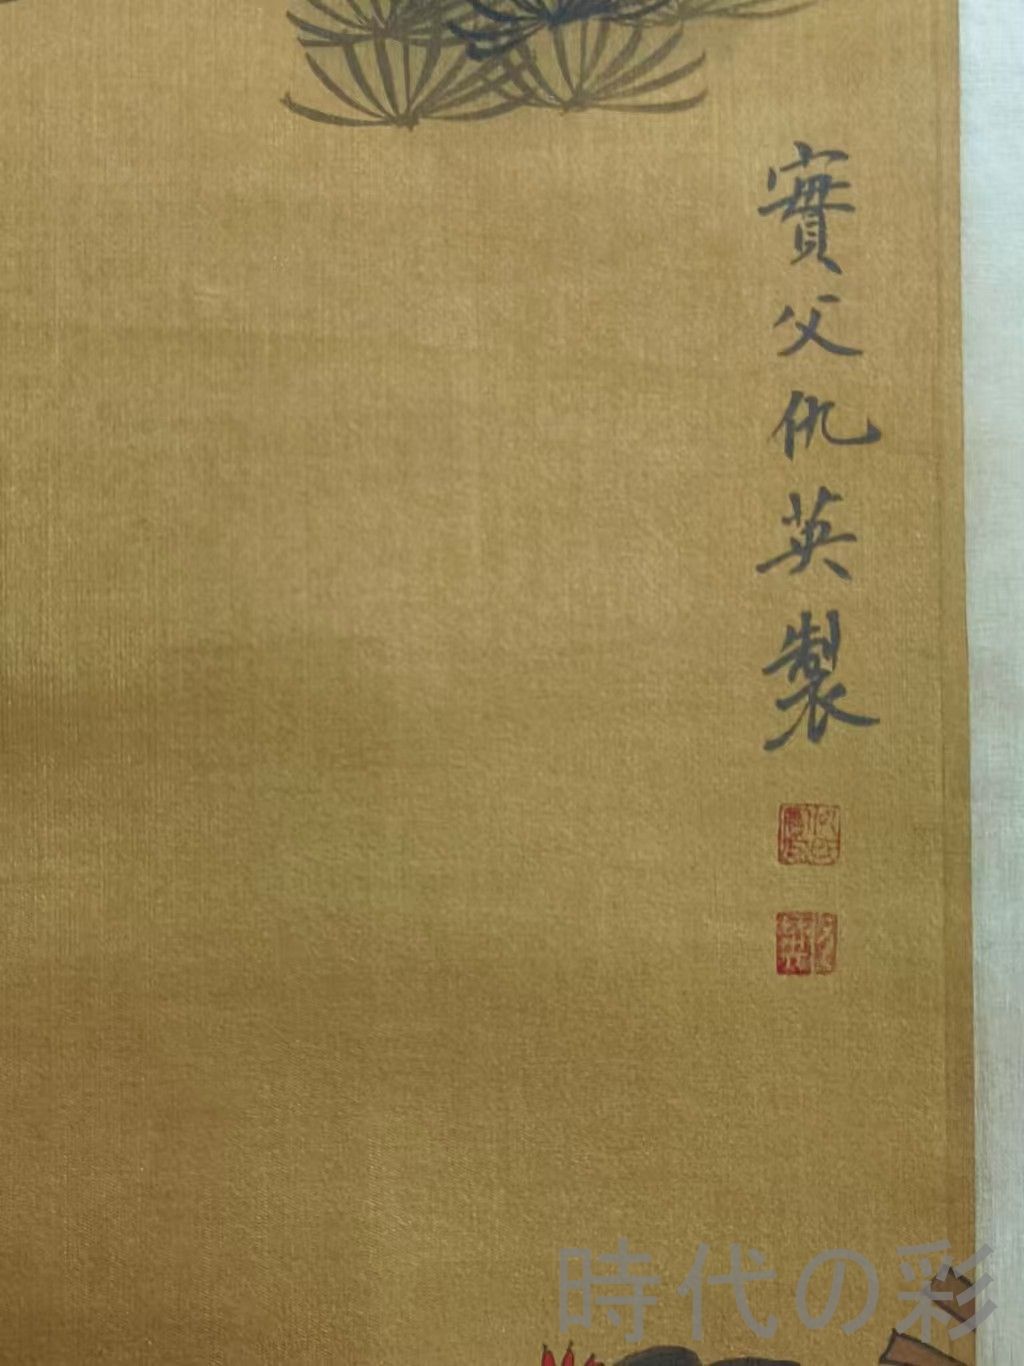 實父仇英製
時代の彩